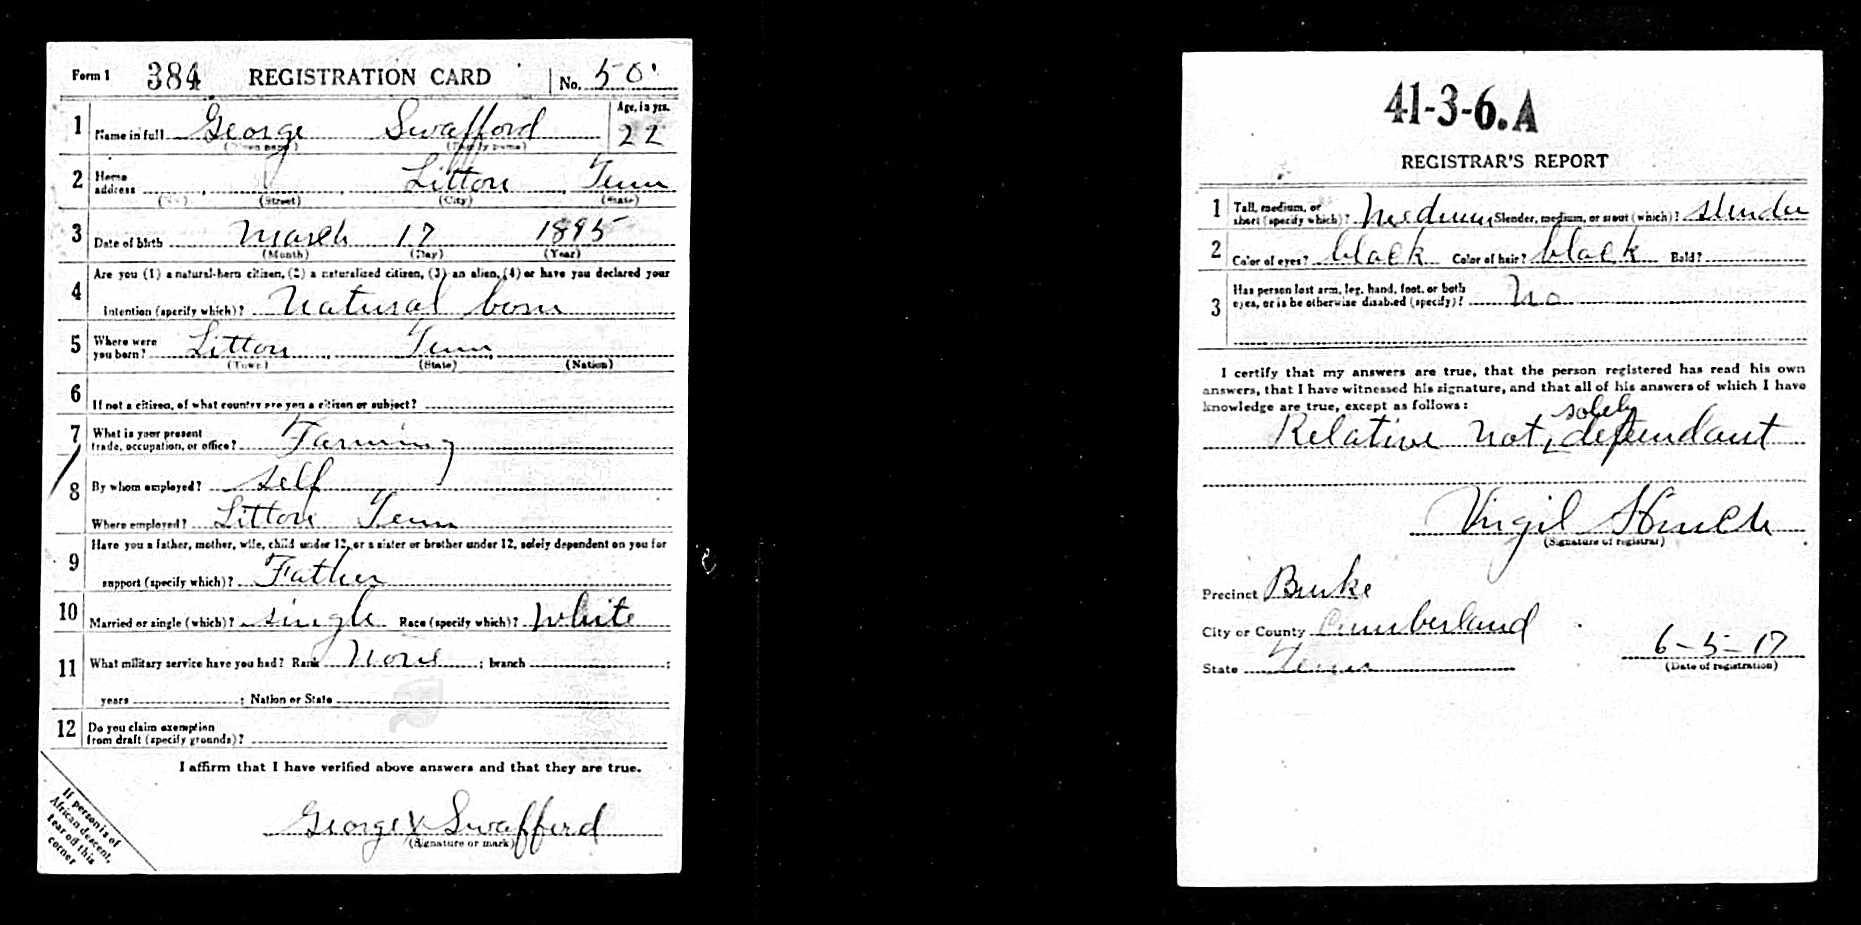 Form 1 384 REGISTRATION CARD No. 50
1 Name in full George Swafford Age, in yrs. 22
(Given name) (Family name)
2 Home address Litton, Tenn
(No.) (Street) (City) (State)
3 Date of birth March 17 1895
(Month) (Day) (Year)
4 Are you (1) a natural-born citizen, (2) a naturalized citizen, (3) an alien, (4) or have you declared your
intention (specify which)? Natural born
5 Where were you born? Litton, Tenn,
(Town) (State) (Nation)
6 If not a citizen, of what country are you a citizen or subject?
7 What is your present trade, occupation, or office? Farming
8 By whom employed? Self
Where employed? Litton Tenn
9 Have you a father, mother, wife, child under 12, or a sister or brother under 12, solely dependent on you for
support (specify which)? Father
10 Married or single (which)? single Race (specify which)? White
11 What military service have you had? Rank None ; branch ;
years ; Nation or State
12 Do you claim exemption from draft (specify grounds)?
I affirm that I have verified above answers and that they are true.
George X Swafford
(Signature or mark)
If person is of
African descent,
tear off this
corner
41-3-6. A
REGISTRAR'S REPORT
1 Tall, medium, or short (specify which)? Medium Slender, medium, or stout (which)? slender
2 Color of eyes? black Color of hair? black Bald?
3 Has person lost arm, leg, hand, foot, or both
eyes, or is he otherwise disabled (specify)? No
I certify that my answers are true, that the person registered has read his own
answers, that I have witnessed his signature, and that all of his answers of which I have
knowledge are true, except as follows:
Relative not solely dependant
Virgil Hinch
(Signature of registrar)
Precinct Burke
City or County Cumberland
State Tenn
6-5-17
(Date of registration)